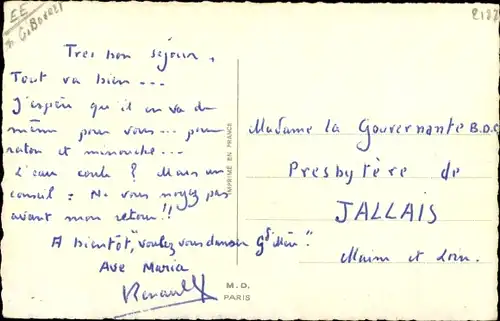 EE
G. BOUET
2188
Tres bon séjour,
Tout va bien ...
J'espère qu'il en va de
même pour vous ... pour
raton et minouche ...
L'eau coule ? Mais un
conseil : Ne vous noyez pas
avant mon retour !!
A bientôt, "voulez vous danser Gd Mère".
Ave Maria
Renault
IMPRIMÉ EN FRANCE
M.D.
PARIS
Madame la Gouvernante B.D.C
Presbytère de
JALLAIS
Maine et Loire.